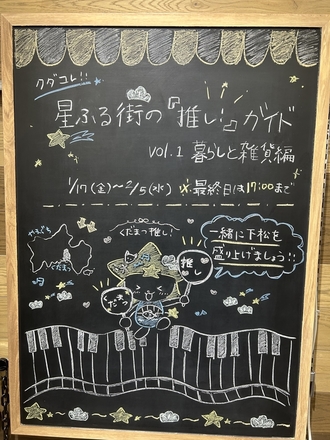 クダコレ!!
星ふる街の『推し』ガイド
vol.1 暮らしと雑貨編
1/17(金)〜2/5(水) ※最終日は17:00まで
やまぐち
くだまつ
くだまつ推し!
推し
一緒に下松を
盛り上げましょう!!